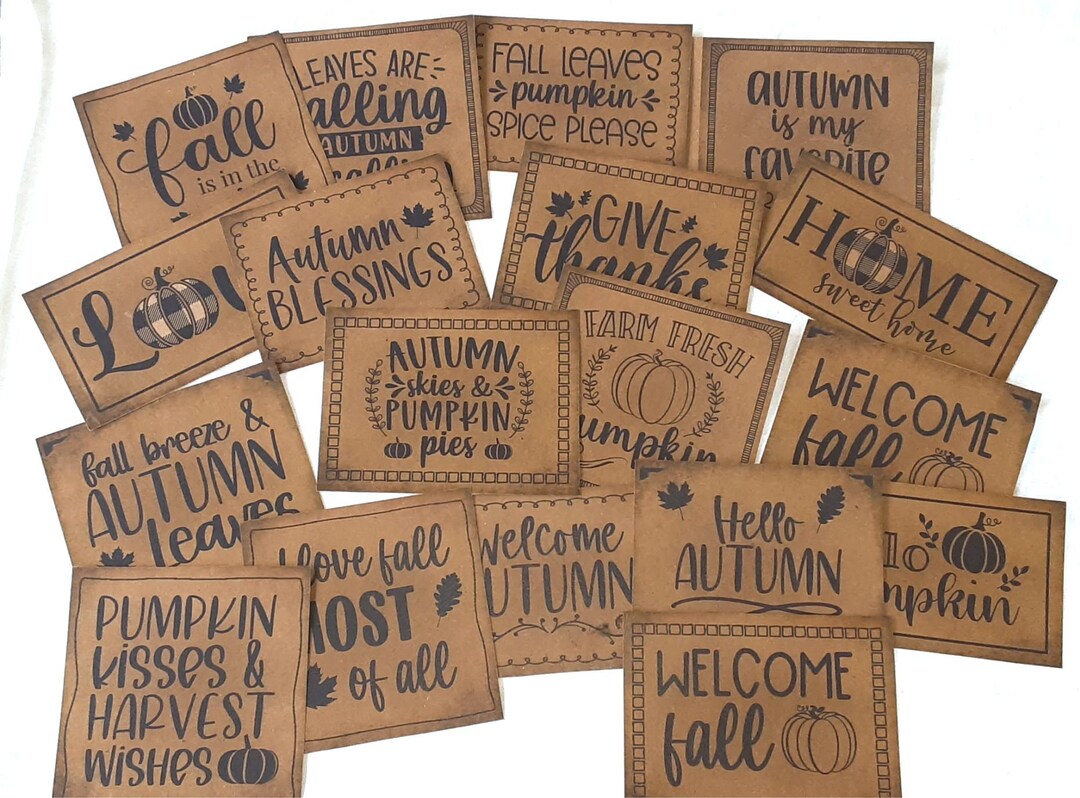 fall
is in the
LEAVES ARE
falling
AUTUMN
FALL LEAVES
pumpkin
SPICE PLEASE
AUTUMN
is my
favorite
Autumn
BLESSINGS
GIVE
thanks
HOME
sweet home
AUTUMN
skies &
PUMPKIN
pies
FARM FRESH
umpkin
WELCOME
fall
fall breeze &
AUTUMN
leaves
I love fall
MOST
of all
Welcome
AUTUMN
Hello
AUTUMN
lo
mpkin
PUMPKIN
kisses &
HARVEST
wishes
WELCOME
fall